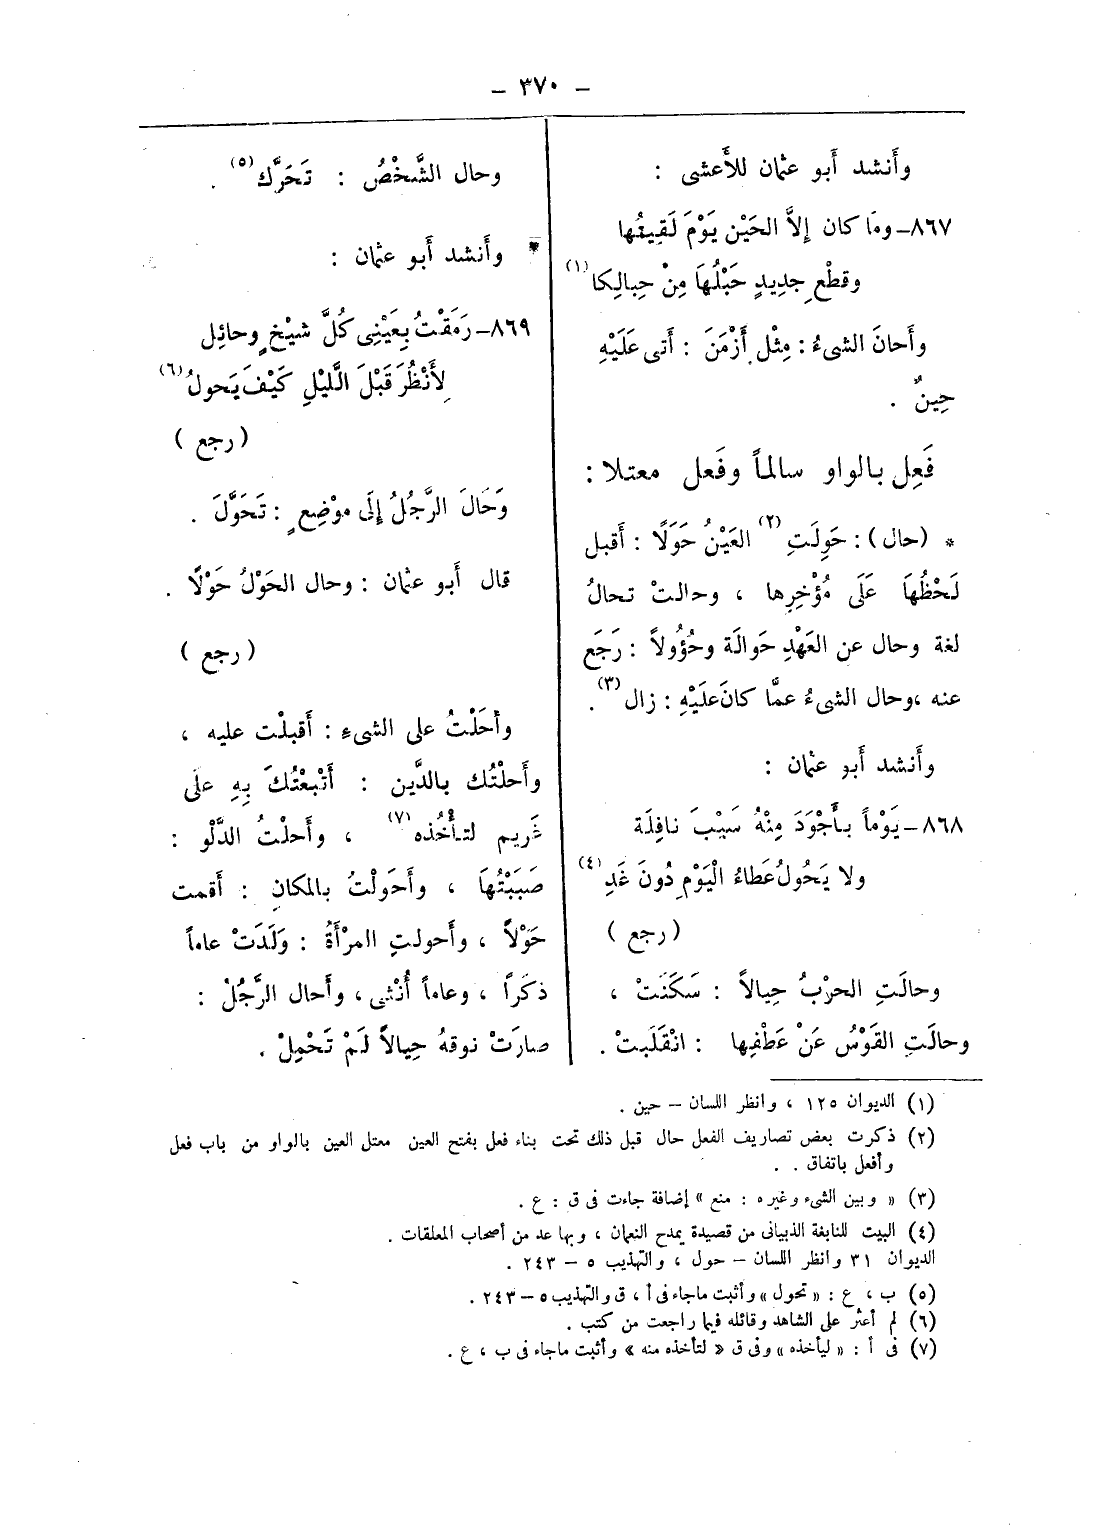 – ٣٧٠ –
وأَنشد أَبو عثمان للأَعشى :
٨٦٧–ومَا كان إِلاَّ الحَيْن يَوْمَ لَقِيتُها
وقطْعِ جدِيدٍ حَبْلُهَا مِنْ حِبالِكا (١)
وأَحانَ الشىءُ : مِثْل أَزْمَنَ : أَتى عَلَيْهِ
حِينٌ .
فَعِل بالواو سالماً وفَعل معتلا :
* (حال) : حَوِلَتِ (٢) العَيْنُ حَوَلًا : أَقبل
لَحْظُهَا عَلَى مُؤْخِرِها ، وحالتْ تحالُ
لغة وحال عن العَهْدِ حَوالَة وحُؤُولاً : رَجَع
عنه ،وحال الشىءُ عمَّا كانَ عَلَيْهِ : زال (٣) .
وأَنشد أَبو عثمان :
٨٦٨–يَوْماً بأَجْوَدَ مِنْهُ سَيْبَ نافِلَة
ولا يَحُولُ عَطاءُ الْيَوْمِ دُونَ غَدِ (٤)
( رجع )
وحالَتِ الحرْبُ حِيالاً : سَكَنَتْ ،
وحالَتِ القَوْسُ عَنْ عَطْفِها : انْقَلَبتْ .
وحال الشَّخْصُ : تَحَرَّك (٥) .
* وأَنشد أَبو عثمان :
٨٦٩–رَمَقْتُ بِعَيْنِى كُلَّ شيْخٍ وحائِل
لِأَنْظُرَ قَبْلَ الَّليْلِ كَيْفَ يَحولُ (٦)
( رجع )
وَحَالَ الرَّجُلُ إِلَى موْضِعٍ : تَحَوَّلَ .
قال أَبو عثمان : وحال الحَوْلُ حَوْلًا .
( رجع )
وأحَلْتُ على الشىءِ : أَقبلْت عليه ،
وأَحلْتُك بالدَّين : أَتْبعْتُكَ بِهِ علَى
غَريم لتأْخُذه (٧) ، وأَحلْتُ الدَّلْو :
صَبَبْتُهَا ، وأَحَوَلْتُ بالمكانِ : أَقمت
حَوْلاً ، وأَحولتِ المرْأَةُ : وَلَدَتْ عاماً
ذكَراً ، وعاماً أُنْثى ، وأَحال الرَّجُلُ :
صارَتْ نوقهُ حِيالاً لَمْ تَحْمِلْ .
(١) الديوان ١٢٥ ، وانظر اللسان – حين .
(٢) ذكرت بعض تصاريف الفعل حال قبل ذلك تحت بناء فعل بفتح العين معتل العين بالواو من باب فعل
وأفعل باتفاق . .
(٣) « وبين الشىء وغيره : منع » إضافة جاءت فى ق : ع .
(٤) البيت للنابغة الذبيانى من قصيدة يمدح النعمان ، وبها عد من أصحاب المعلقات .
الديوان ٣١ وانظر اللسان – حول ، والتهذيب ٥ – ٢٤٣ .
(٥) ب ، ع : « تحول » وأثبت ماجاء فى أ ، ق والتهذيب ٥ – ٢٤٣ .
(٦) لم أعثر على الشاهد وقائله فيما راجعت من كتب .
(٧) فى أ : « ليأخذه » وفى ق « لتأخذه منه » وأثبت ماجاء فى ب ، ع .